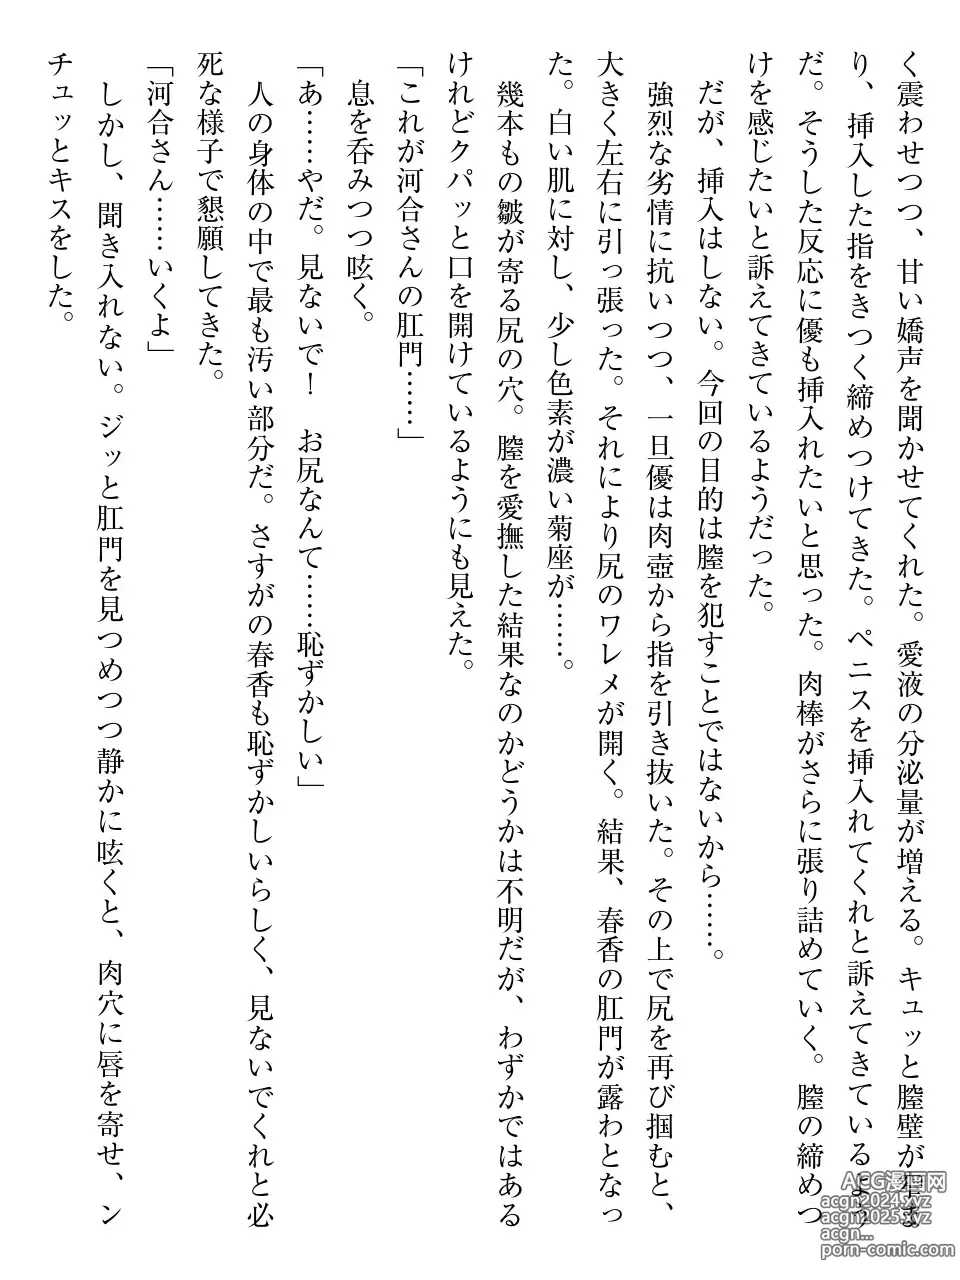 く震わせつつ、甘い嬌声を聞かせてくれた。愛液の分泌量が増える。キュッと膣壁が窄ま
り、挿入した指をきつく締めつけてきた。ペニスを挿入れてくれと訴えてきているよう
だ。そうした反応に優も挿入れたいと思った。肉棒がさらに張り詰めていく。膣の締めつ
けを感じたいと訴えてきているようだった。
だが、挿入はしない。今回の目的は膣を犯すことではないから……。
強烈な劣情に抗いつつ、一旦優は肉壺から指を引き抜いた。その上で尻を再び掴むと、
大きく左右に引っ張った。それにより尻のワレメが開く。結果、春香の肛門が露わとなっ
た。白い肌に対し、少し色素が濃い菊座が……。
幾本もの皺が寄る尻の穴。膣を愛撫した結果なのかどうかは不明だが、わずかではある
けれどクパッと口を開けているようにも見えた。
「これが河合さんの肛門……」
息を呑みつつ呟く。
「あ……やだ。見ないで！　お尻なんて……恥ずかしい」
人の身体の中で最も汚い部分だ。さすがの春香も恥ずかしいらしく、見ないでくれと必
死な様子で懇願してきた。
「河合さん……いくよ」
しかし、聞き入れない。ジッと肛門を見つめつつ静かに呟くと、肉穴に唇を寄せ、ン
チュッとキスをした。
ACG漫画网
acgn2024.xyz
acgn2025.xyz
acgn...
porn-comic.com